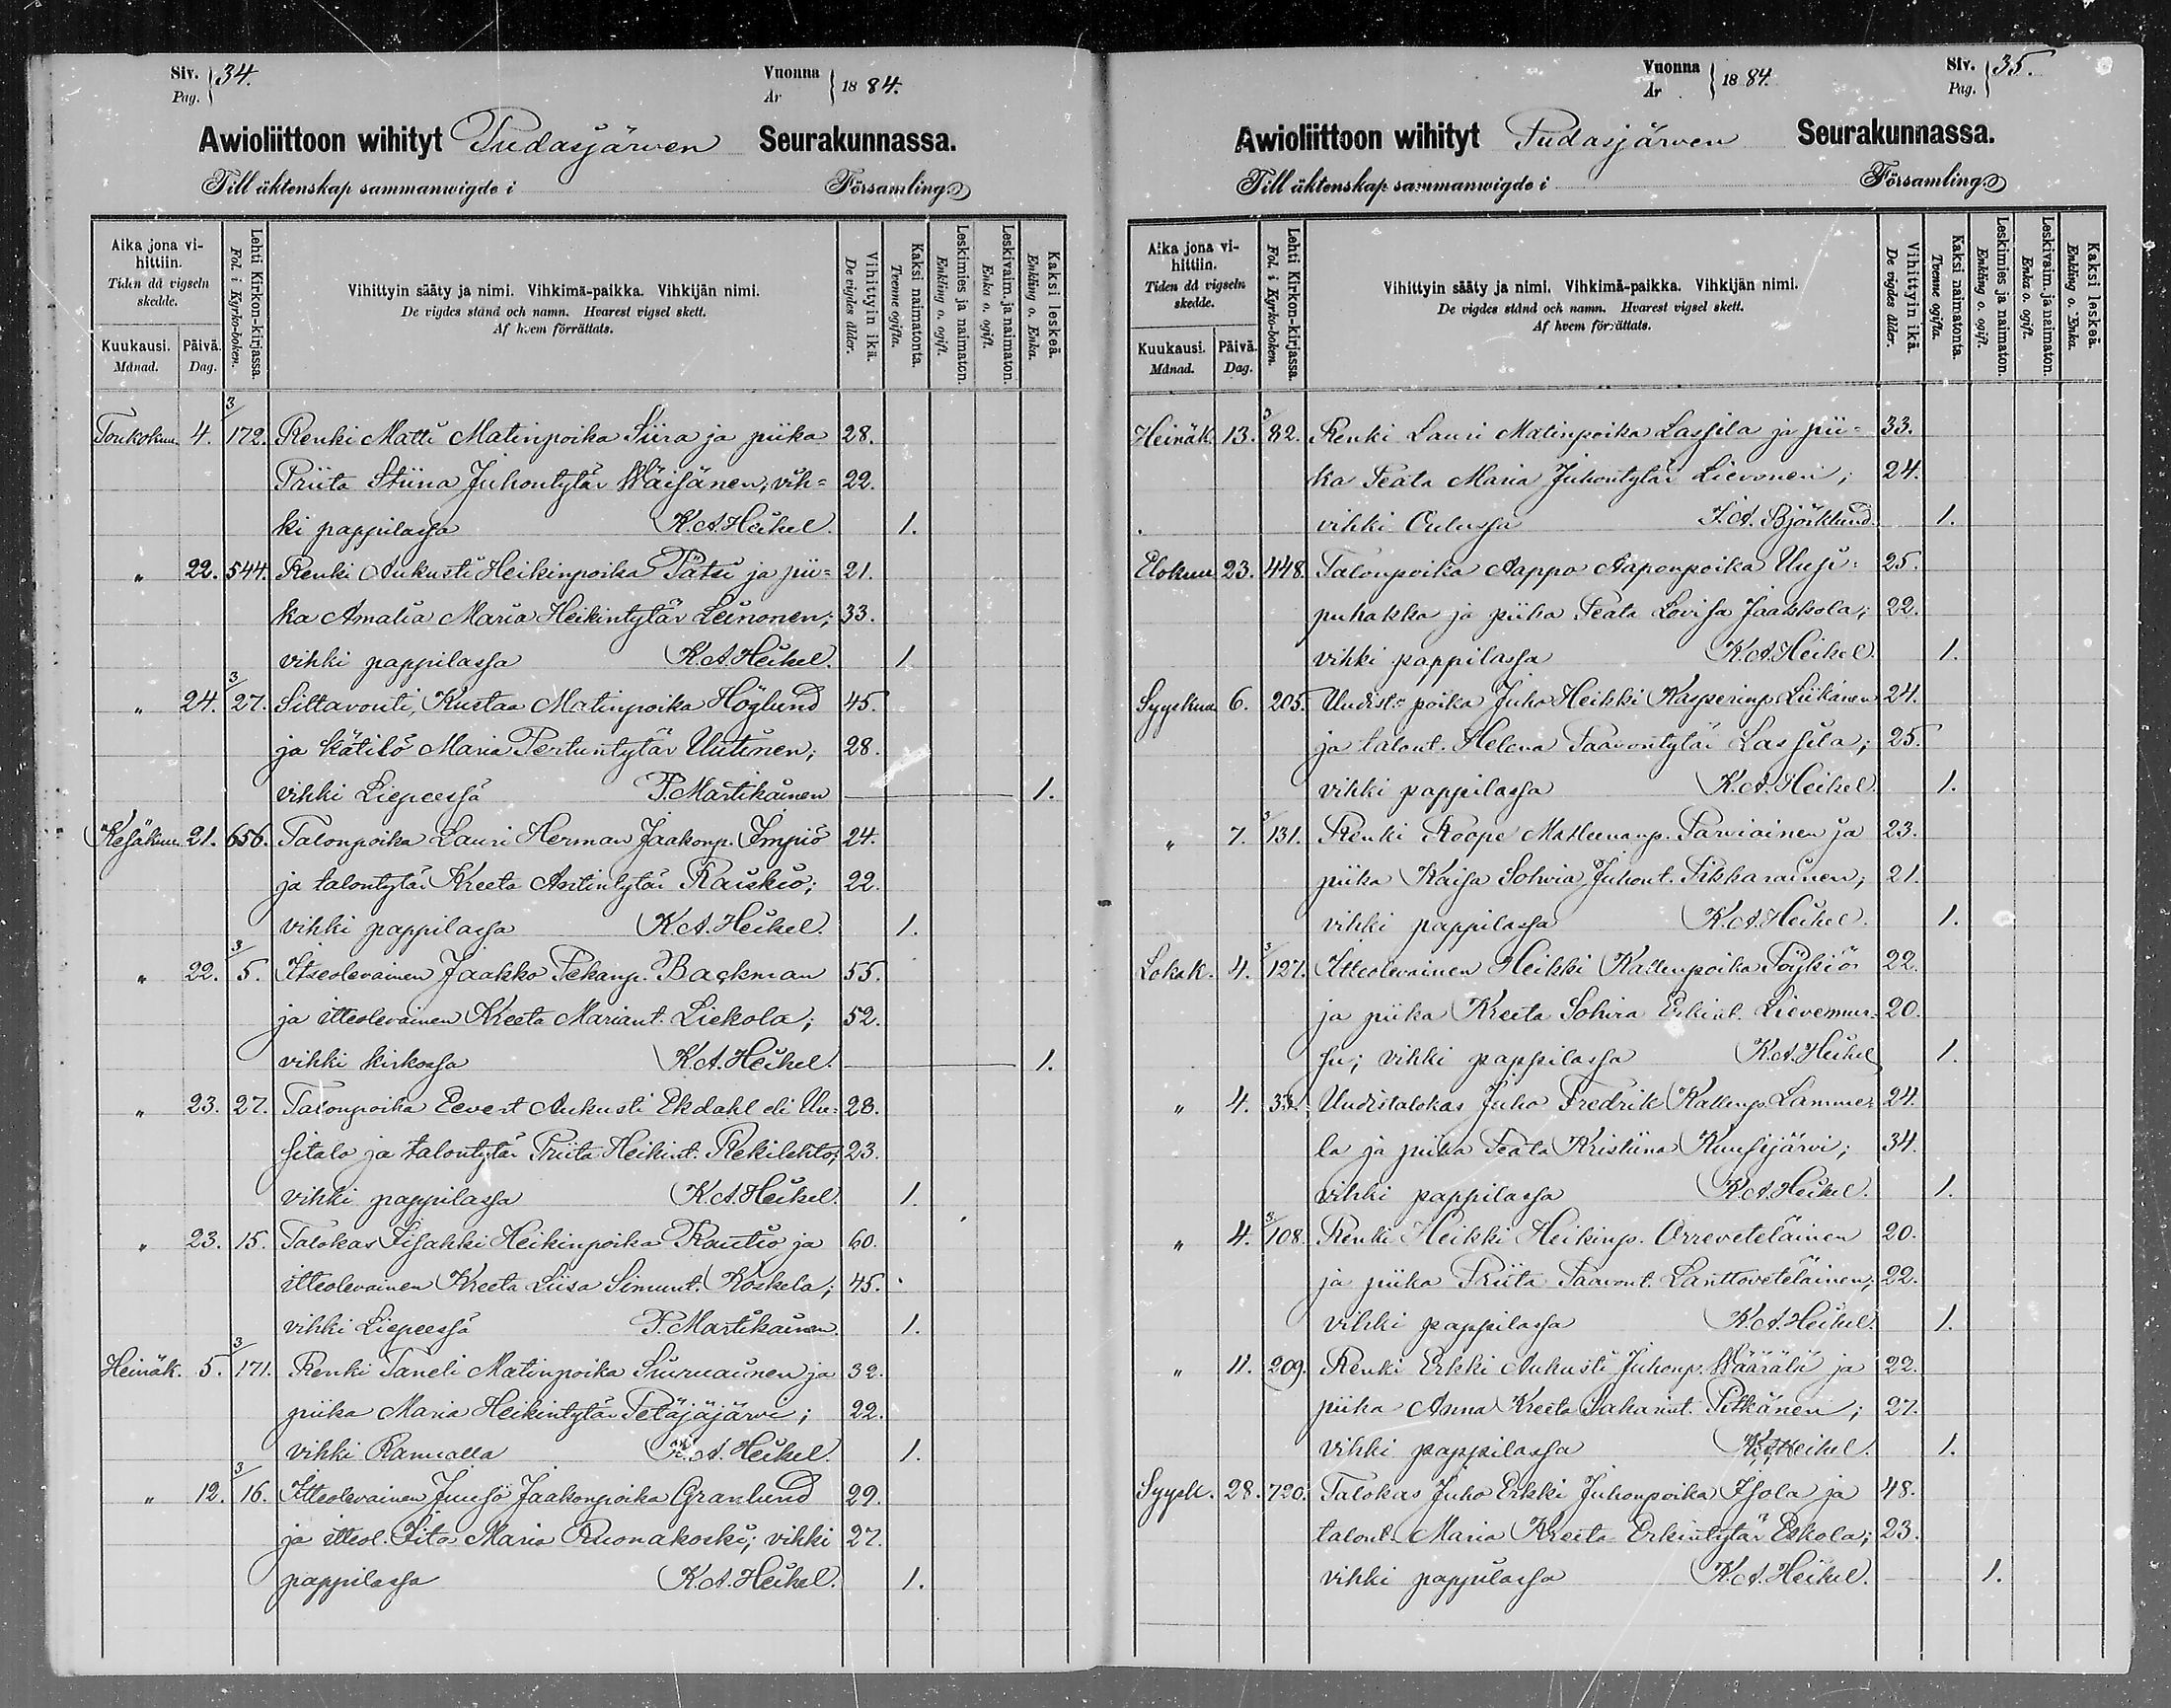 Siv. Pag. 34.
Vuonna År 1884.
Awioliittoon wihityt Pudasjärven Seurakunnassa.
Till äktenskap sammanwigde i Församling
Aika jona vihittiin.
Tiden då vigseln skedde.
Kuukausi. Månad.
Päivä. Dag.
Lehti Kirkon-kirjassa.
Fol. i Kyrko-boken.
Vihittyin sääty ja nimi. Vihkimä-paikka. Vihkijän nimi.
De vigdes stånd och namn. Hvarest vigsel skett.
Af hvem förrättats.
Vihittyin ikä.
De vigdes ålder.
Kaksi naimatonta.
Tvenne ogifta.
Leskimies ja naimaton.
Enkling o. ogift.
Leskivaim. ja naimaton.
Enka o. ogift.
Kaksi leskeä.
Enkling o. Enka.
Toukokuu 4. 3/172. Renki Matti Matinpoika Siira ja piika 28.
Priita Stiina Juhontytär Wäisänen; vih= 22.
ki pappilassa K.A. Heikel. 1.
" 22. 544. Renki Aukusti Heikinpoika Pätsi ja pii= 21.
ka Amalia Maria Heikintytär Leinonen; 33.
vihki pappilassa K.A. Heikel. 1
" 24. 3/27. Siltavouti, Kustaa Matinpoika Höglund 45.
ja kätilö Maria Pertuntytär Uutinen; 28.
vihki Liepeessä P. Martikainen 1.
Kesäkuu 21. 656. Talonpoika Lauri Herman Jaakonp. Impiö 24.
ja talontytär Kreeta Antintytär Raiskio; 22.
vihki pappilassa K.A. Heikel. 1.
" 22. 3/5. Itseolevainen Jaakko Pekanp. Backman 55.
ja itteolevainen Kreeta Mariant. Liekola; 52.
vihki kirkossa K.A. Heikel. 1.
" 23. 27. Talonpoika Eevert Aukusti Ekdahl eli Uu= 28.
sitalo ja talontytär Priita Heikint. Rekilehto; 23.
vihki pappilassa K.A. Heikel. 1.
" 23. 15. Talokas Iisakki Heikinpoika Rautio ja 60.
itteolevainen Kreeta Liisa Simunt. Koskela; 45.
vihki Liepeessä P. Martikainen. 1.
Heinäk. 5. 3/171. Renki Taneli Matinpoika Siuruainen ja 32.
piika Maria Heikintytär Petäjäjärvi; 22.
vihki Ranualla K.A. Heikel. 1.
" 12. 3/16. Itteolevainen Juuso Jaakonpoika Granlund 29.
ja itteol. Iita Maria Ruonakoski; vihki 27.
pappilassa K.A. Heikel. 1.
Vuonna År 1884.
Siv. Pag. 35.
Awioliittoon wihityt Pudasjärven Seurakunnassa.
Till äktenskap sammanwigde i Församling
Aika jona vihittiin.
Tiden då vigseln skedde.
Kuukausi. Månad.
Päivä. Dag.
Lehti Kirkon-kirjassa.
Fol. i Kyrko-boken.
Vihittyin sääty ja nimi. Vihkimä-paikka. Vihkijän nimi.
De vigdes stånd och namn. Hvarest vigsel skett.
Af hvem förrättats.
Vihittyin ikä.
De vigdes ålder.
Kaksi naimatonta.
Tvenne ogifta.
Leskimies ja naimaton.
Enkling o. ogift.
Leskivaim. ja naimaton.
Enka o. ogift.
Kaksi leskeä.
Enkling o. Enka.
Heinäk. 13. 3/82. Renki Lauri Matinpoika Lassila ja pii= 33.
ka Peata Maria Juhontytär Lievonen; 24.
vihki Oulussa Björklund. 1.
Elokuu 23. 448. Talonpoika Aappo Aaponpoika Uusi= 25.
puhakka ja piika Peata Lovisa Jaakkola; 22.
vihki pappilassa K.A. Heikel. 1.
Syyskuu 6. 205. Uudist= poika Juho Heikki Kasperinp. Liikanen 24.
ja talont. Helena Paavontytär Lassila; 25.
vihki pappilassa K.A. Heikel 1.
" 7. 3/131. Renki Roope Matleenanp. Parviainen ja 23.
piika Kaisa Sohvia Juhont. Pikkarainen; 21.
vihki pappilassa K.A. Heikel. 1.
Lokak. 4. 3/127. Itteolevainen Heikki Kallenpoika Pöykiö 22.
ja piika Kreeta Sohvia Erkint. Lievemur= 20.
su; vihki pappilassa K.A. Heikel 1.
" 4. 33. Uudistalokas Juho Fredrik Kallenp. Lamme= 24.
la ja piika Peata Kristiina Kuusijärvi; 34.
vihki pappilassa K.A. Heikel. 1.
" 4. 3/108. Renki Heikki Heikinp. Orreveteläinen 20.
ja piika Priita Paavont. Lanttoveteläinen; 22.
vihki pappilassa K.A. Heikel. 1.
" 11. 209. Renki Erkki Aukusti Juhonp. Väärälä ja 22.
piika Anna Kreeta Sakarint. Pitkänen; 27.
vihki pappilassa K.A. Heikel. 1.
Syysk. 28. 720. Talokas Juho Erkki Juhonpoika Isola ja 48.
talont. Maria Kreeta Erkintytär Eskola; 23.
vihki pappilassa K.A. Heikel. 1.